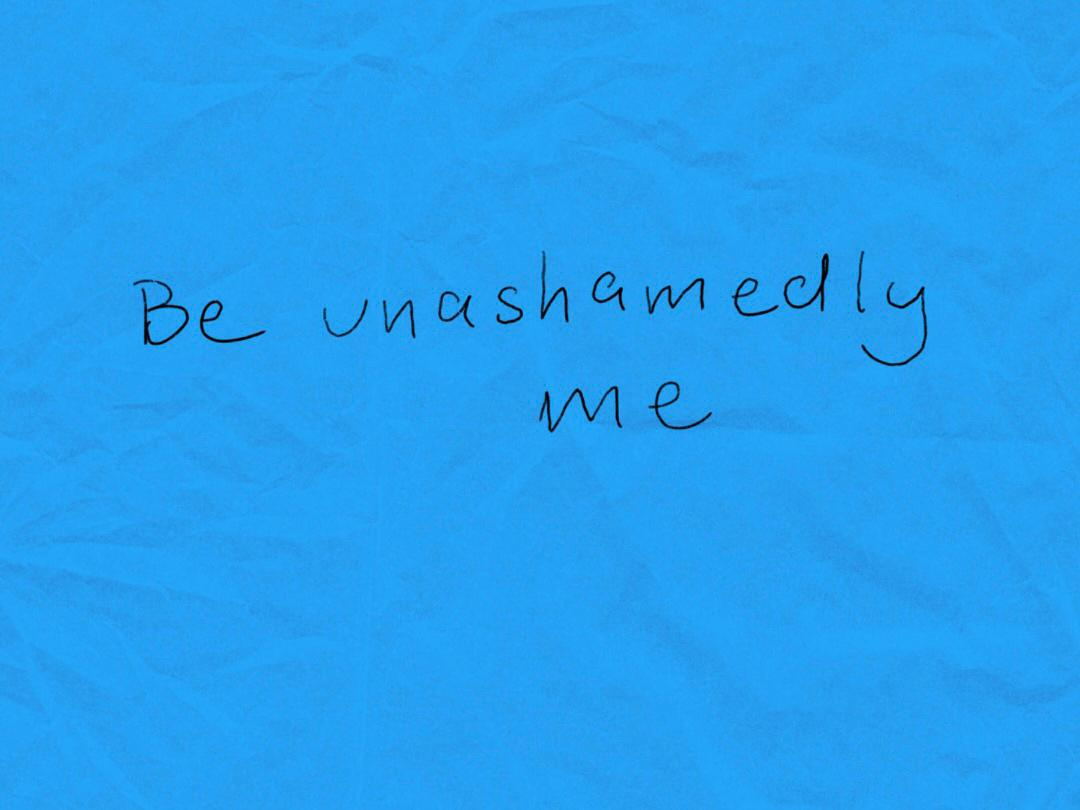 Be unashamedly
me